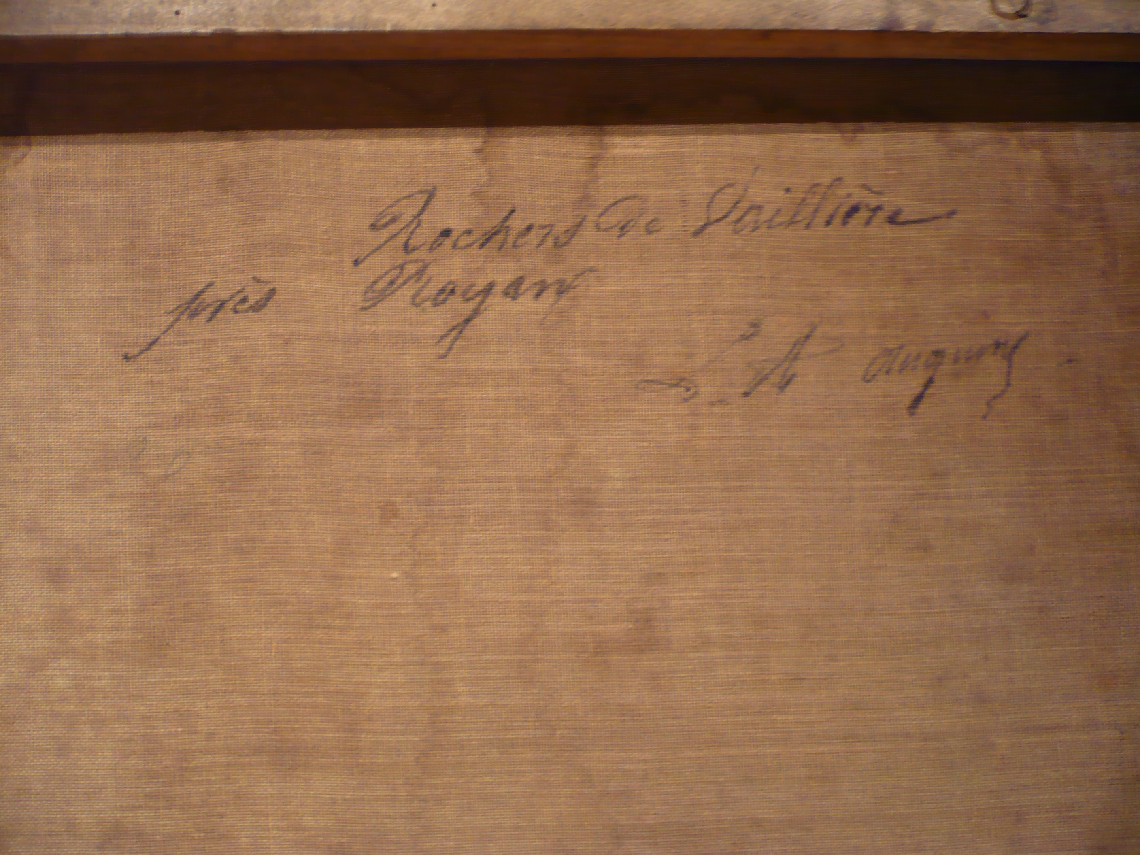 Rochers de Vallière
près Royan
L. A. Auguin